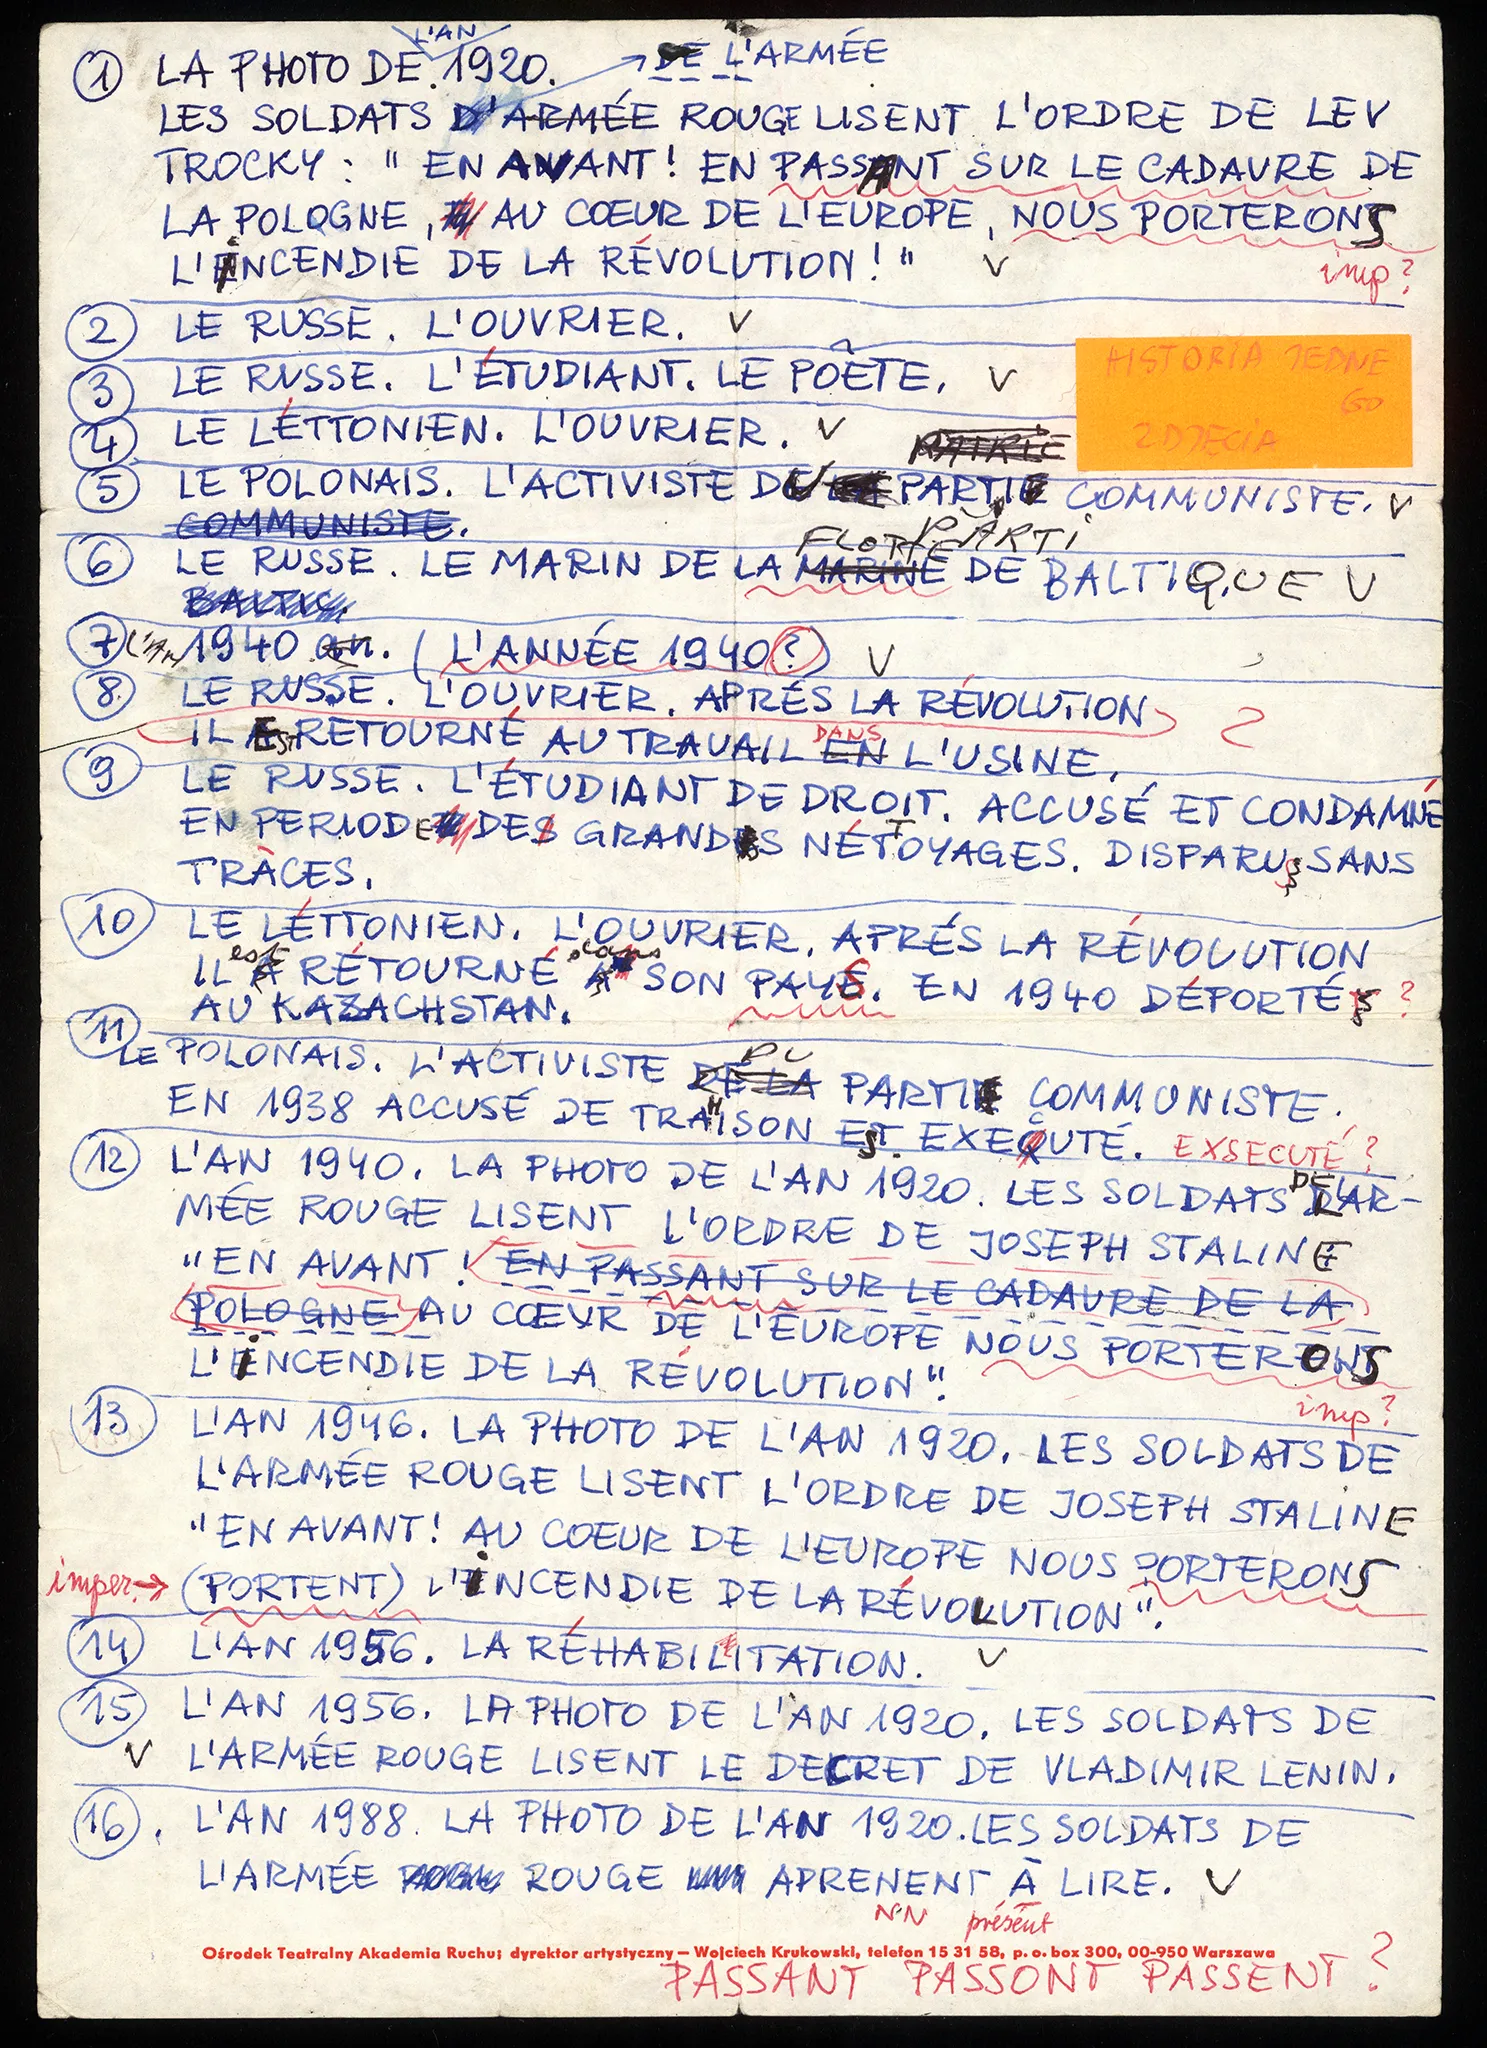 ① LA PHOTO DE L'AN 1920. DE L'ARMÉE
LES SOLDATS D'ARMÉE ROUGE LISENT L'ORDRE DE LEV
TROCKY : " EN AVANT! EN PASSANT SUR LE CADAVRE DE
LA POLOGNE, AU CŒUR DE L'EUROPE, NOUS PORTERONS
L'INCENDIE DE LA RÉVOLUTION!" V
imp?
② LE RUSSE. L'OUVRIER. V
③ LE RUSSE. L'ÉTUDIANT. LE POÊTE. V
HISTORIA JEDNE
GO
ZDJĘCIA
④ LE LÉTTONIEN. L'OUVRIER. V
PATRIE
⑤ LE POLONAIS. L'ACTIVISTE DU PARTI COMMUNISTE. V
COMMUNISTE. PARTI
FLOTTE
⑥ LE RUSSE. LE MARIN DE LA MARINE DE BALTIQUE V
BALTIC.
⑦ L'AN 1940 an. (L'ANNÉE 1940?) V
⑧ LE RUSSE. L'OUVRIER. APRÉS LA RÉVOLUTION ?
IL EST RETOURNÉ AU TRAVAIL EN DANS L'USINE.
⑨ LE RUSSE. L'ÉTUDIANT DE DROIT. ACCUSÉ ET CONDAMNÉ
EN PERIODE DES GRANDES NÉTTOYAGES. DISPARU SANS
TRÀCES.
⑩ LE LÉTTONIEN. L'OUVRIER. APRÉS LA RÉVOLUTION
est dans
IL A RÉTOURNÉ A SON PAYS. EN 1940 DÉPORTÉ ?
AU KAZACHSTAN.
⑪ LE POLONAIS. L'ACTIVISTE DE LA DU PARTI COMMUNISTE.
EN 1938 ACCUSÉ DE TRAHISON EST EXEQUTÉ. EXSECUTÉ?
⑫ L'AN 1940. LA PHOTO DE L'AN 1920. LES SOLDATS DE L'AR-
MÉE ROUGE LISENT L'ORDRE DE JOSEPH STALINE
"EN AVANT! EN PASSANT SUR LE CADAVRE DE LA
POLOGNE AU CŒUR DE L'EUROPE NOUS PORTERONS
L'INCENDIE DE LA RÉVOLUTION".
imp?
⑬ L'AN 1946. LA PHOTO DE L'AN 1920. LES SOLDATS DE
L'ARMÉE ROUGE LISENT L'ORDRE DE JOSEPH STALINE
"EN AVANT! AU COEUR DE L'EUROPE NOUS PORTERONS
imper.→ (PORTENT) L'INCENDIE DE LA RÉVOLUTION".
⑭ L'AN 1956. LA RÉHABILITATION. V
⑮ L'AN 1956. LA PHOTO DE L'AN 1920. LES SOLDATS DE
V L'ARMÉE ROUGE LISENT LE DECRET DE VLADIMIR LENIN.
⑯. L'AN 1988. LA PHOTO DE L'AN 1920. LES SOLDATS DE
L'ARMÉE ROUGE APRENENT À LIRE. V
NN présent
Ośrodek Teatralny Akademia Ruchu; dyrektor artystyczny – Wojciech Krukowski, telefon 15 31 58, p. o. box 300, 00-950 Warszawa
PASSANT PASSONT PASSENT?